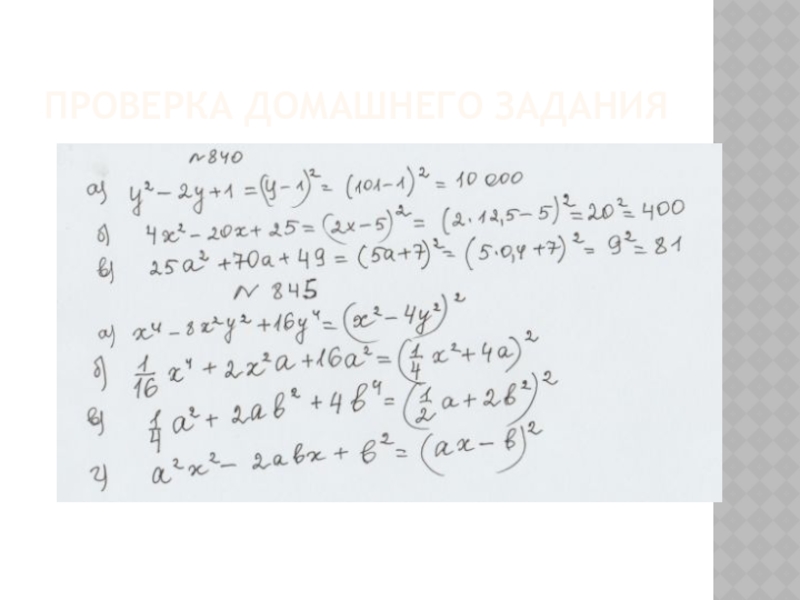 ПРОВЕРКА ДОМАШНЕГО ЗАДАНИЯ
№840
а) y² − 2y + 1 = (y − 1)² = (101 − 1)² = 10 000
б) 4x² − 20x + 25 = (2x − 5)² = (2·12,5 − 5)² = 20² = 400
в) 25a² + 70a + 49 = (5a + 7)² = (5·0,4 + 7)² = 9² = 81
№ 845
а) x⁴ − 8x²y² + 16y⁴ = (x² − 4y²)²
б) 1/16 x⁴ + 2x²a + 16a² = (1/4 x² + 4a)²
в) 1/4 a² + 2ab² + 4b⁴ = (1/2 a + 2b²)²
г) a²x² − 2abx + b² = (ax − b)²